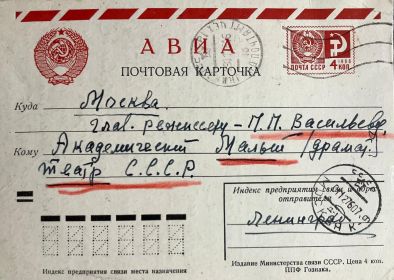 АВИА
ПОЧТОВАЯ КАРТОЧКА
1966
ПОЧТА СССР 4 КОП
Куда Москва.
Глав. режиссеру - П. П. Васильеву
Кому Академический Малый /драма/
театр С.С.С.Р.
Индекс предприятия связи и адрес
отправителя
Ленинград
Индекс предприятия связи места назначения
Издание Министерства связи СССР. Цена 4 коп.
ППФ Гознака.